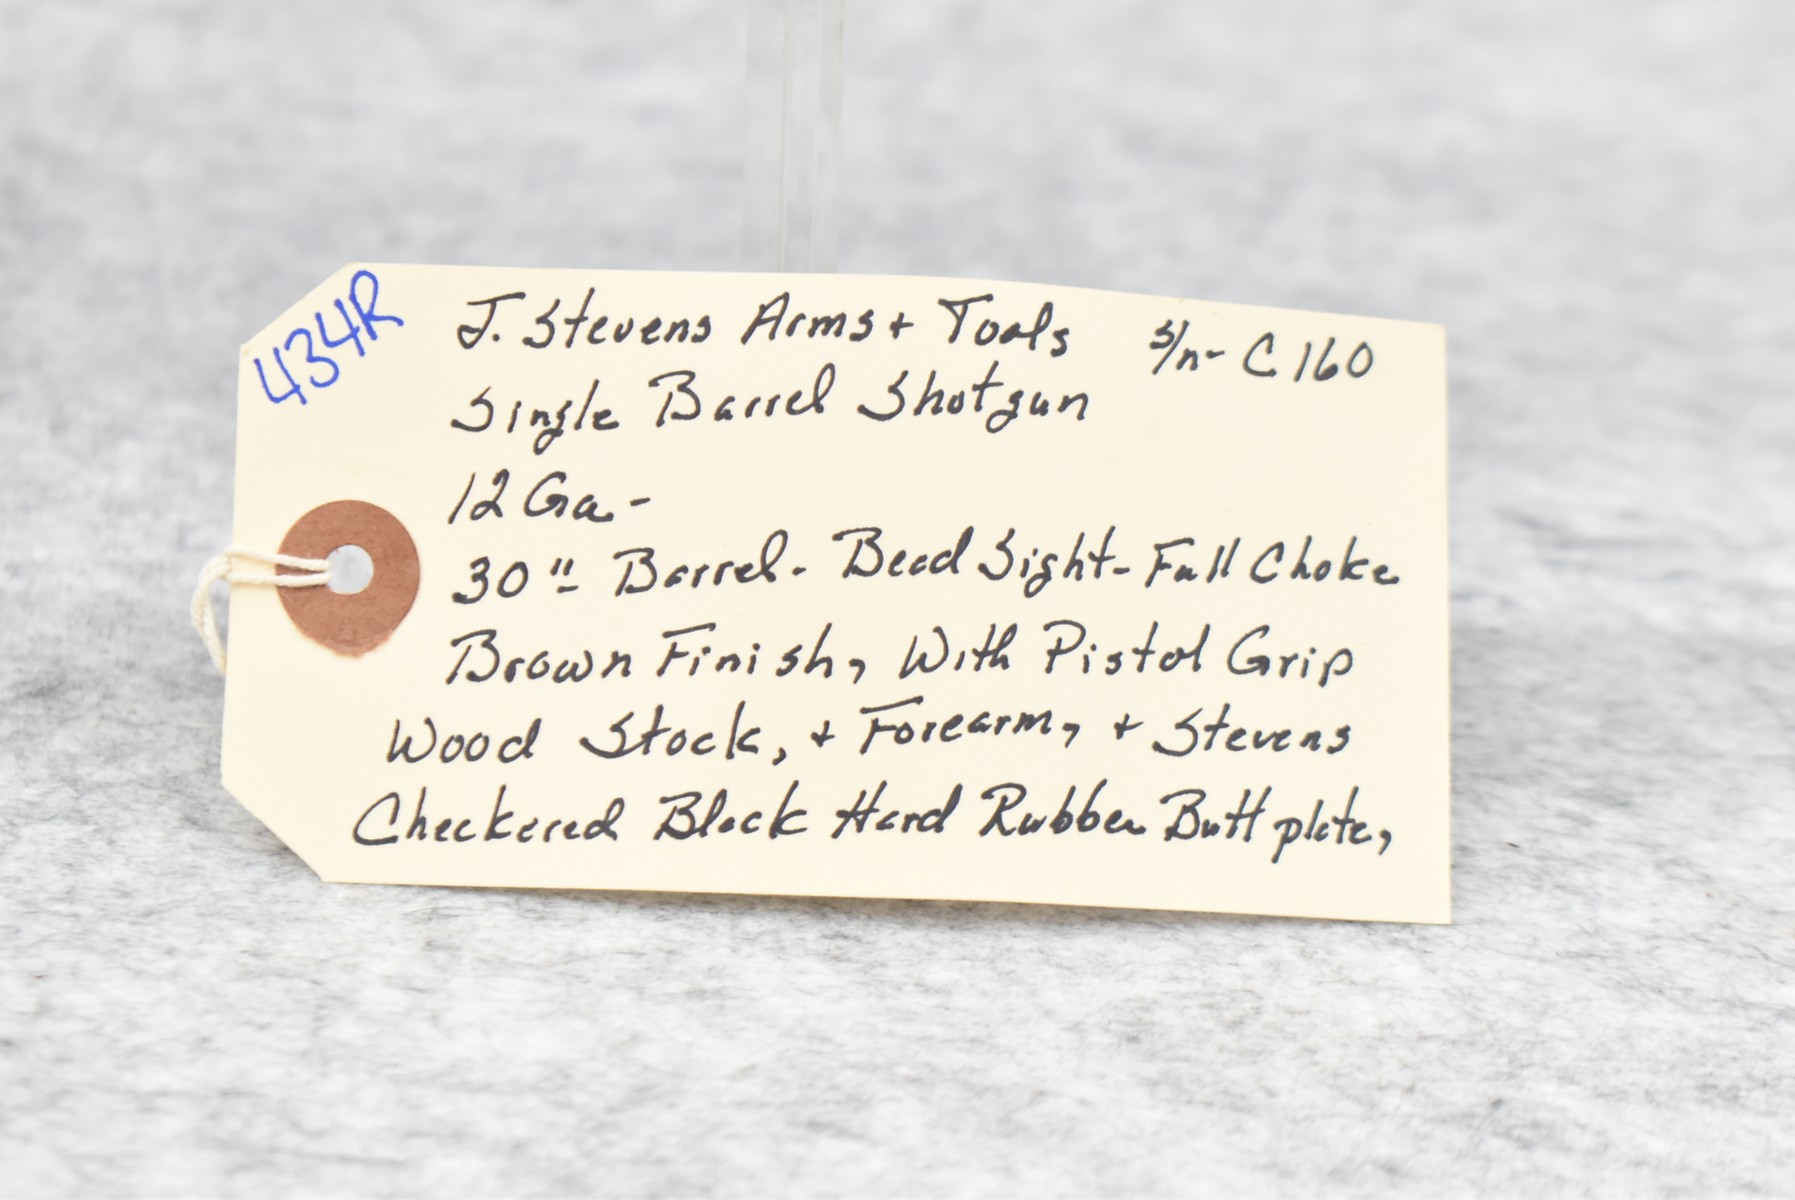 434R
J. Stevens Arms + Tools S/n- C160
Single Barrel Shotgun
12 Ga-
30"- Barrel- Bead Sight- Full Choke
Brown Finish, With Pistol Grip
Wood Stock, + Forearm, + Stevens
Checkered Black Hard Rubber Butt plate,